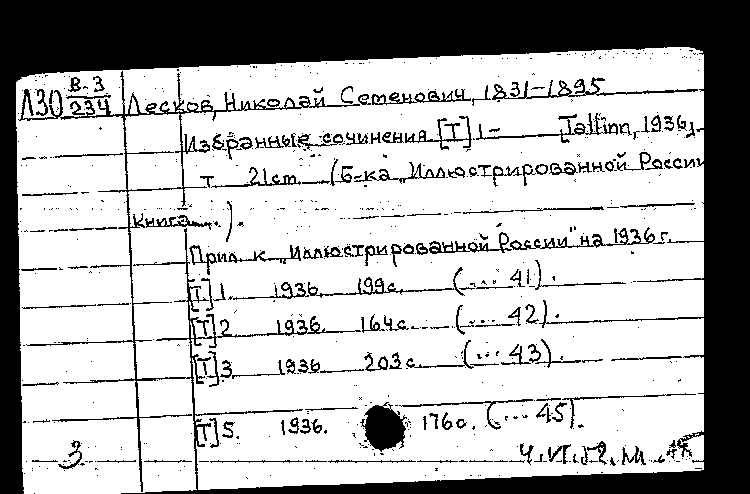 Л30 В-3/234 Лесков, Николай Семенович, 1831-1895
Избранные сочинения [Т] 1- [Tallinn, 1936].
т. 21cm (Б-ка "Иллюстрированной России
книга....).
Прил. к "Иллюстрированной России" на 1936 г.
[Т] 1. 1936. 199 с. (... 41).
[Т] 2 1936. 164 с. (... 42).
[Т] 3. 1936 203 с. (... 43).
[Т] 5. 1936. 176 с. (... 45).
3
4.VI.52.